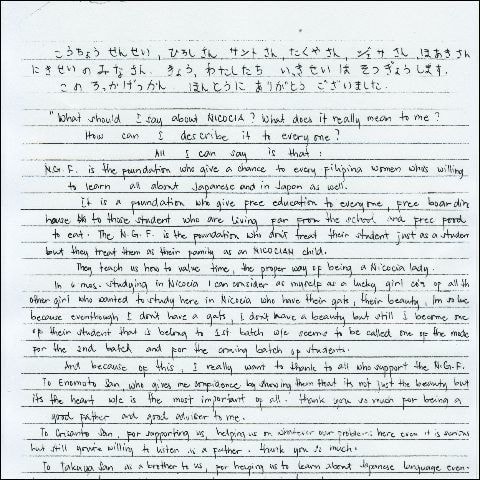 こうちょう せんせい, ひろし さん サントさん, たくや さん, ジェサ さん ほあき さん
にきせいの みなさん. きょう, わたしたち いっきせい は そつぎょうします.
この ろっかげっかん ほんとうに ありがとう ございました.
"What should I say about NICOCIA? What does it really mean to me?
How can I describe it to everyone?
All I can say is that:
N.G.F. is the foundation who give a chance to every filipina women who's willing
to learn all about Japanese and in Japan as well.
It is a foundation who give free education to everyone, free boardin
house to those student who are living far from the school and free food
to eat. The N.G.F. is the foundation who don't treat their student just as a studen
but they treat them as their family as an NICOCIAN child.
They teach us how to value time, the proper way of being a Nicocia lady.
In 6 mos. studying in Nicocia I can consider as myself as a lucky girl coz of all th
other girl who wanted to study here in Nicocia who have their gats, their beauty, Im so luc
because eventhough I don't have a gats, I don't have a beauty but still I become one
of their student that is belong to 1st batch w/c seems to be called one of the mode
for the 2nd batch and for the coming batch of students.
And because of this, I really want to thank to all who support the N.G.F.
To Enomoto San who gives me confidence by showing them that its not just the beauty but
its the heart w/c is the most important of all. thank you so much for being a
good father and good adviser to me.
To Crisanto San, for supporting us, helping us on whatever our problems here even it is serious
but still you're willing to listen as a father. thank you so much.
To Takuya San as a brother to us, for helping us to learn about Japanese language even-